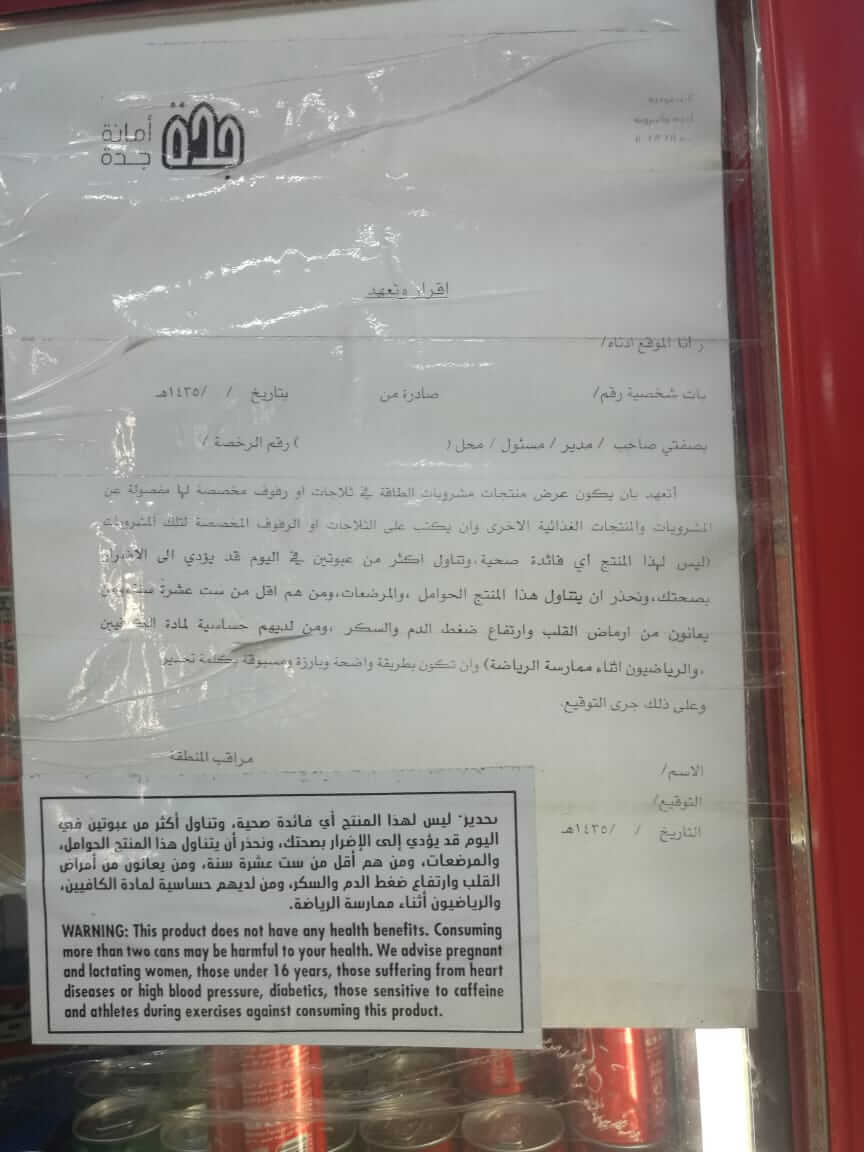 أمانة
جدة
جدة
اقرار وتعهد
انا الموقع ادناه/
شخصية رقم/ صادرة من بتاريخ / /١٤٣٥هـ
بصفتي صاحب / مدير / مسئول / محل ( ) رقم الرخصة /
أتعهد بان يكون عرض منتجات مشروبات الطاقة في ثلاجات او رفوف مخصصة لها مفصولة عن
المشروبات والمنتجات الغذائية الاخرى وان يكتب على الثلاجات او الرفوف المخصصة لتلك المشروبات
(ليس لهذا المنتج أي فائدة صحية،وتناول اكثر من عبوتين في اليوم قد يؤدي الى الاضرار
بصحتك،ونحذر ان يتناول هذا المنتج الحوامل ،والمرضعات،ومن هم اقل من ست عشرة
يعانون من ارماض القلب وارتفاع ضغط الدم والسكر ،ومن لديهم حساسية لمادة الكافيين
،والرياضيون اثناء ممارسة الرياضة) وان تكون بطريقة واضحة وبارزة ومسبوقة بكلمة تحذير
وعلى ذلك جرى التوقيع.
مراقب المنطقة
الاسم/
التوقيع/
التاريخ / /١٤٣٥هـ
تحذير: ليس لهذا المنتج أي فائدة صحية، وتناول أكثر من عبوتين في
اليوم قد يؤدي إلى الإضرار بصحتك، ونحذر أن يتناول هذا المنتج الحوامل،
والمرضعات، ومن هم أقل من ست عشرة سنة، ومن يعانون من أمراض
القلب وارتفاع ضغط الدم والسكر، ومن لديهم حساسية لمادة الكافيين،
والرياضيون أثناء ممارسة الرياضة.
WARNING: This product does not have any health benefits. Consuming
more than two cans may be harmful to your health. We advise pregnant
and lactating women, those under 16 years, those suffering from heart
diseases or high blood pressure, diabetics, those sensitive to caffeine
and athletes during exercises against consuming this product.